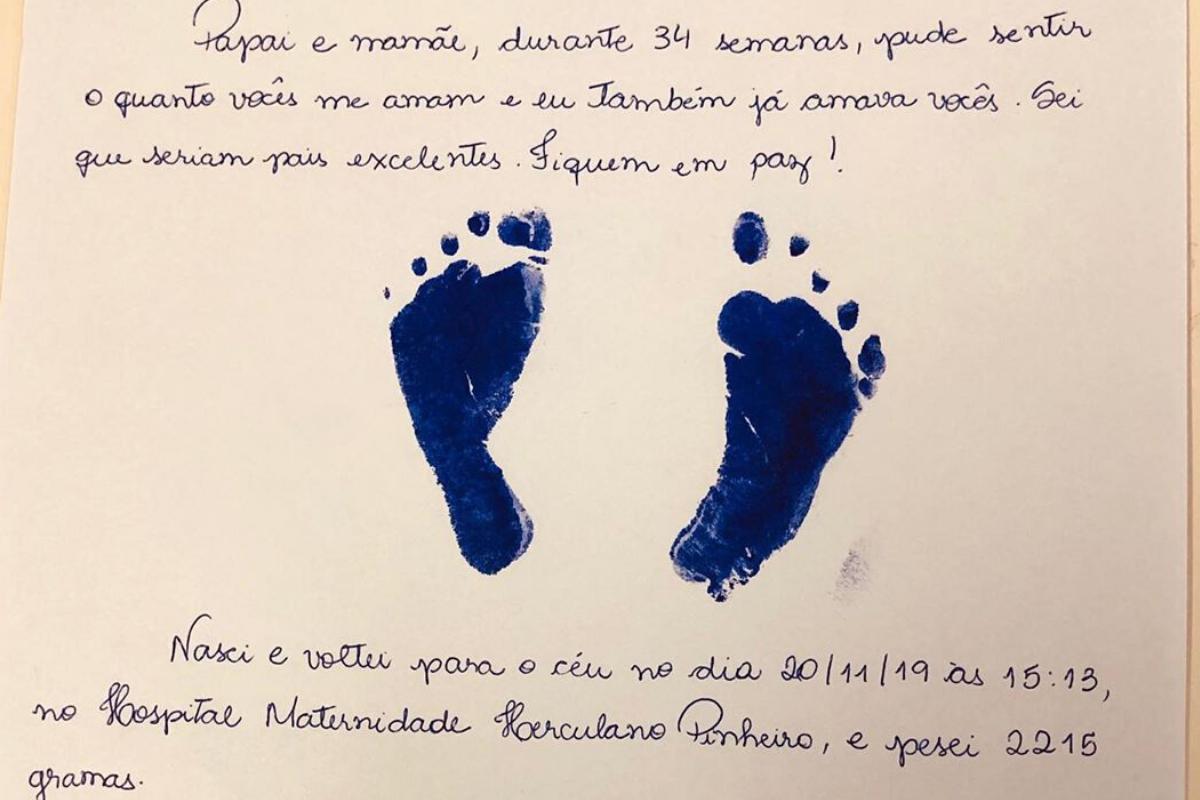 Papai e mamãe, durante 34 semanas, pude sentir
o quanto vocês me amam e eu também já amava vocês. Sei
que seriam pais excelentes. Fiquem em paz!
Nasci e voltei para o céu no dia 20/11/19 às 15:13,
no Hospital Maternidade Herculano Pinheiro, e pesei 2215
gramas.